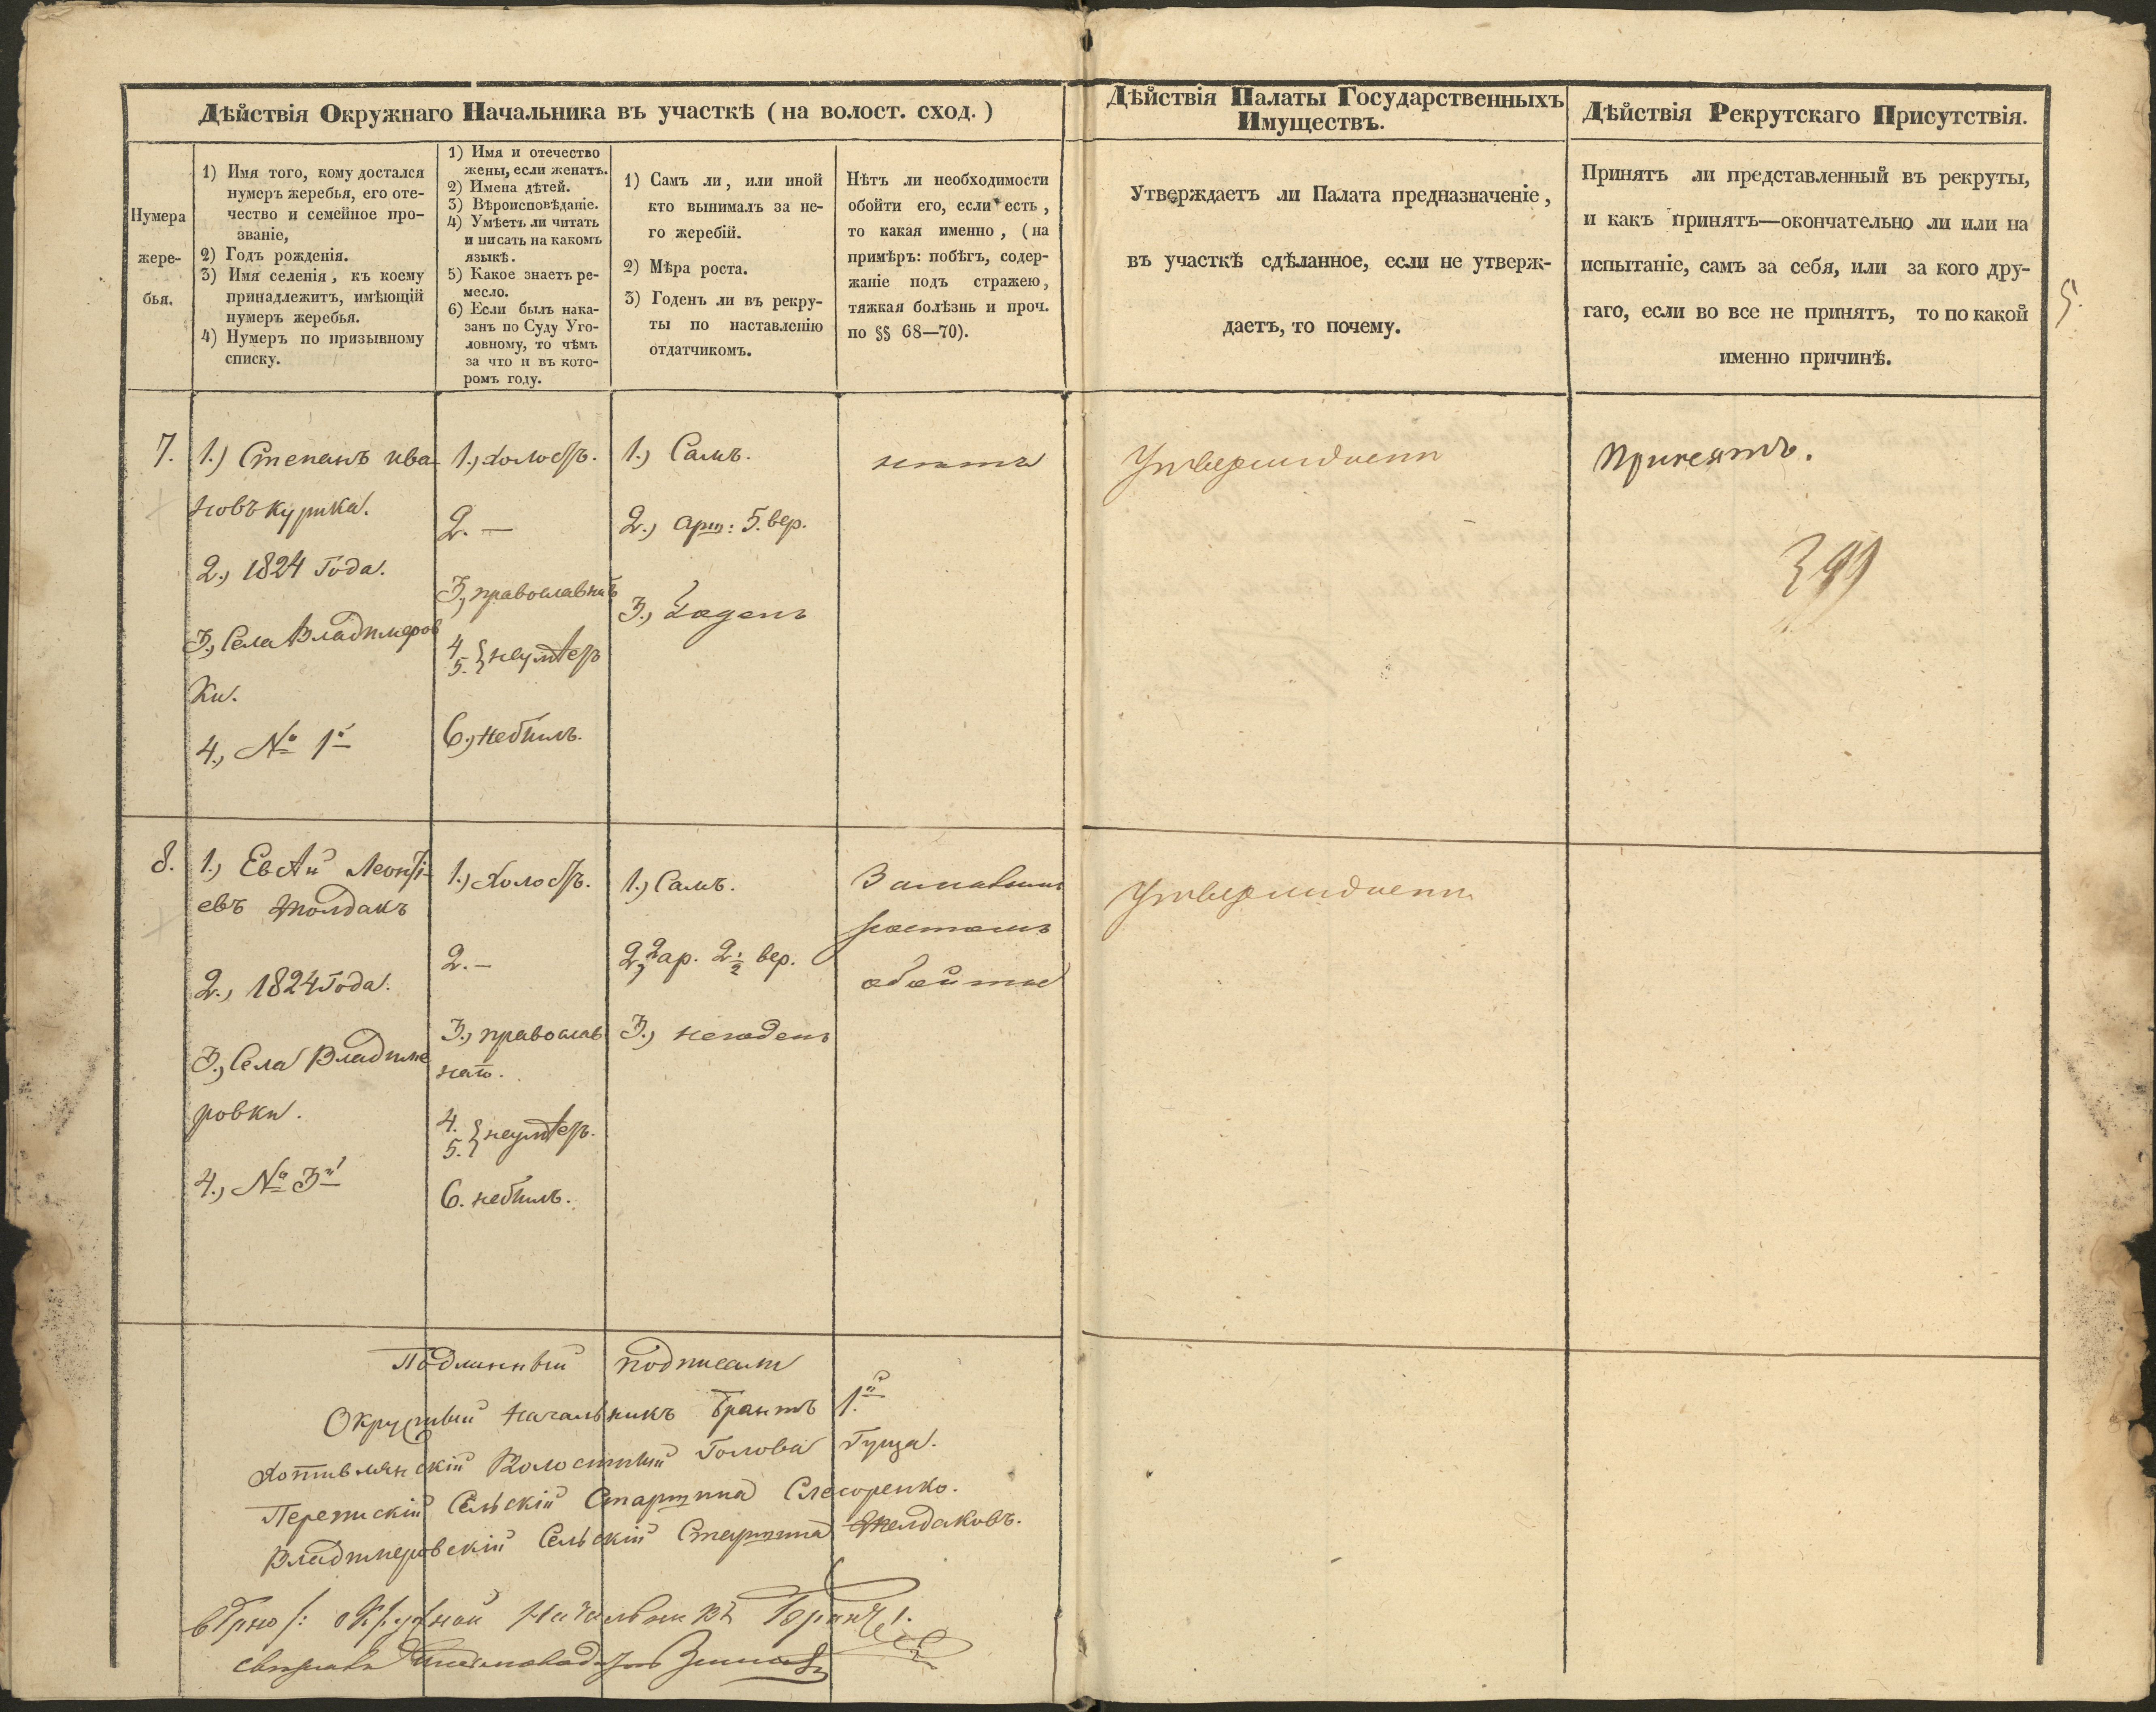 Дѣйствія Окружнаго Начальника въ участкѣ (на волост. сход.)
Дѣйствія Палаты Государственныхъ
Имуществъ.
Дѣйствія Рекрутскаго Присутствія.
Нумера
жере-
бья.
1) Имя того, кому достался
нумеръ жеребья, его оте-
чество и семейное про-
званіе,
2) Годъ рожденія.
3) Имя селенія, къ коему
принадлежитъ, имѣющій
нумеръ жеребья.
4) Нумеръ по призывному
списку.
1) Имя и отечество
жены, если женатъ.
2) Имена дѣтей.
3) Вѣроисповѣданіе.
4) Умѣетъ ли читать
и писать на какомъ
языкѣ.
5) Какое знаетъ ре-
месло.
6) Если былъ нака-
занъ по Суду Уго-
ловному, то чѣмъ
за что и въ кото-
ромъ году.
1) Самъ ли, или иной
кто вынималъ за не-
го жеребій.
2) Мѣра роста.
3) Годенъ ли въ рекру-
ты по наставленію
отдатчикомъ.
Нѣтъ ли необходимости
обойти его, если есть,
то какая именно, (на
примѣръ: побѣгъ, содер-
жаніе подъ стражею,
тяжкая болѣзнь и проч.
по §§ 68—70).
Утверждаетъ ли Палата предназначеніе,
въ участкѣ сдѣланное, если не утверж-
даетъ, то почему.
Принятъ ли представленный въ рекруты,
и какъ принятъ—окончательно ли или на
испытаніе, самъ за себя, или за кого дру-
гаго, если во все не принятъ, то по какой
именно причинѣ.
5.
7.
1.) Степанъ ива-
новъ курика.
2., 1824 Года.
3., Села Владимеров
ки.
4., № 1й
1., холостъ.
2. —
3, православнаго
4.
5. } неумѣетъ
6., небылъ.
1., Самъ.
2., арш: 5. вер.
3., Годенъ
нѣтъ
Утверждаетъ
Принятъ.
399
8.
1., Евсѣй Леонтi-
евъ Жолдакъ
2., 1824 Года.
3., Села Владиме
ровки.
4., № 3й
1., холостъ.
2. —
3., православ
наго.
4.
5. } неумѣетъ.
6. небылъ.
1., Самъ.
2, 2 ар. 2 1/2 вер.
3., негоденъ
За малымъ
ростомъ
обойти
Утверждаетъ
Подлинный подписали
Окружный Начальникъ Брантъ 1й
Хотивлянскій Волостный Голова Гуща.
Переписскій Сельскій Старшина Слесоренко.
Владимеровскій Сельскій Старшина Жолдаковъ.
вѣрно /: Окружной Начальникъ Брантъ 1.
свѣрялъ Письмоводитель